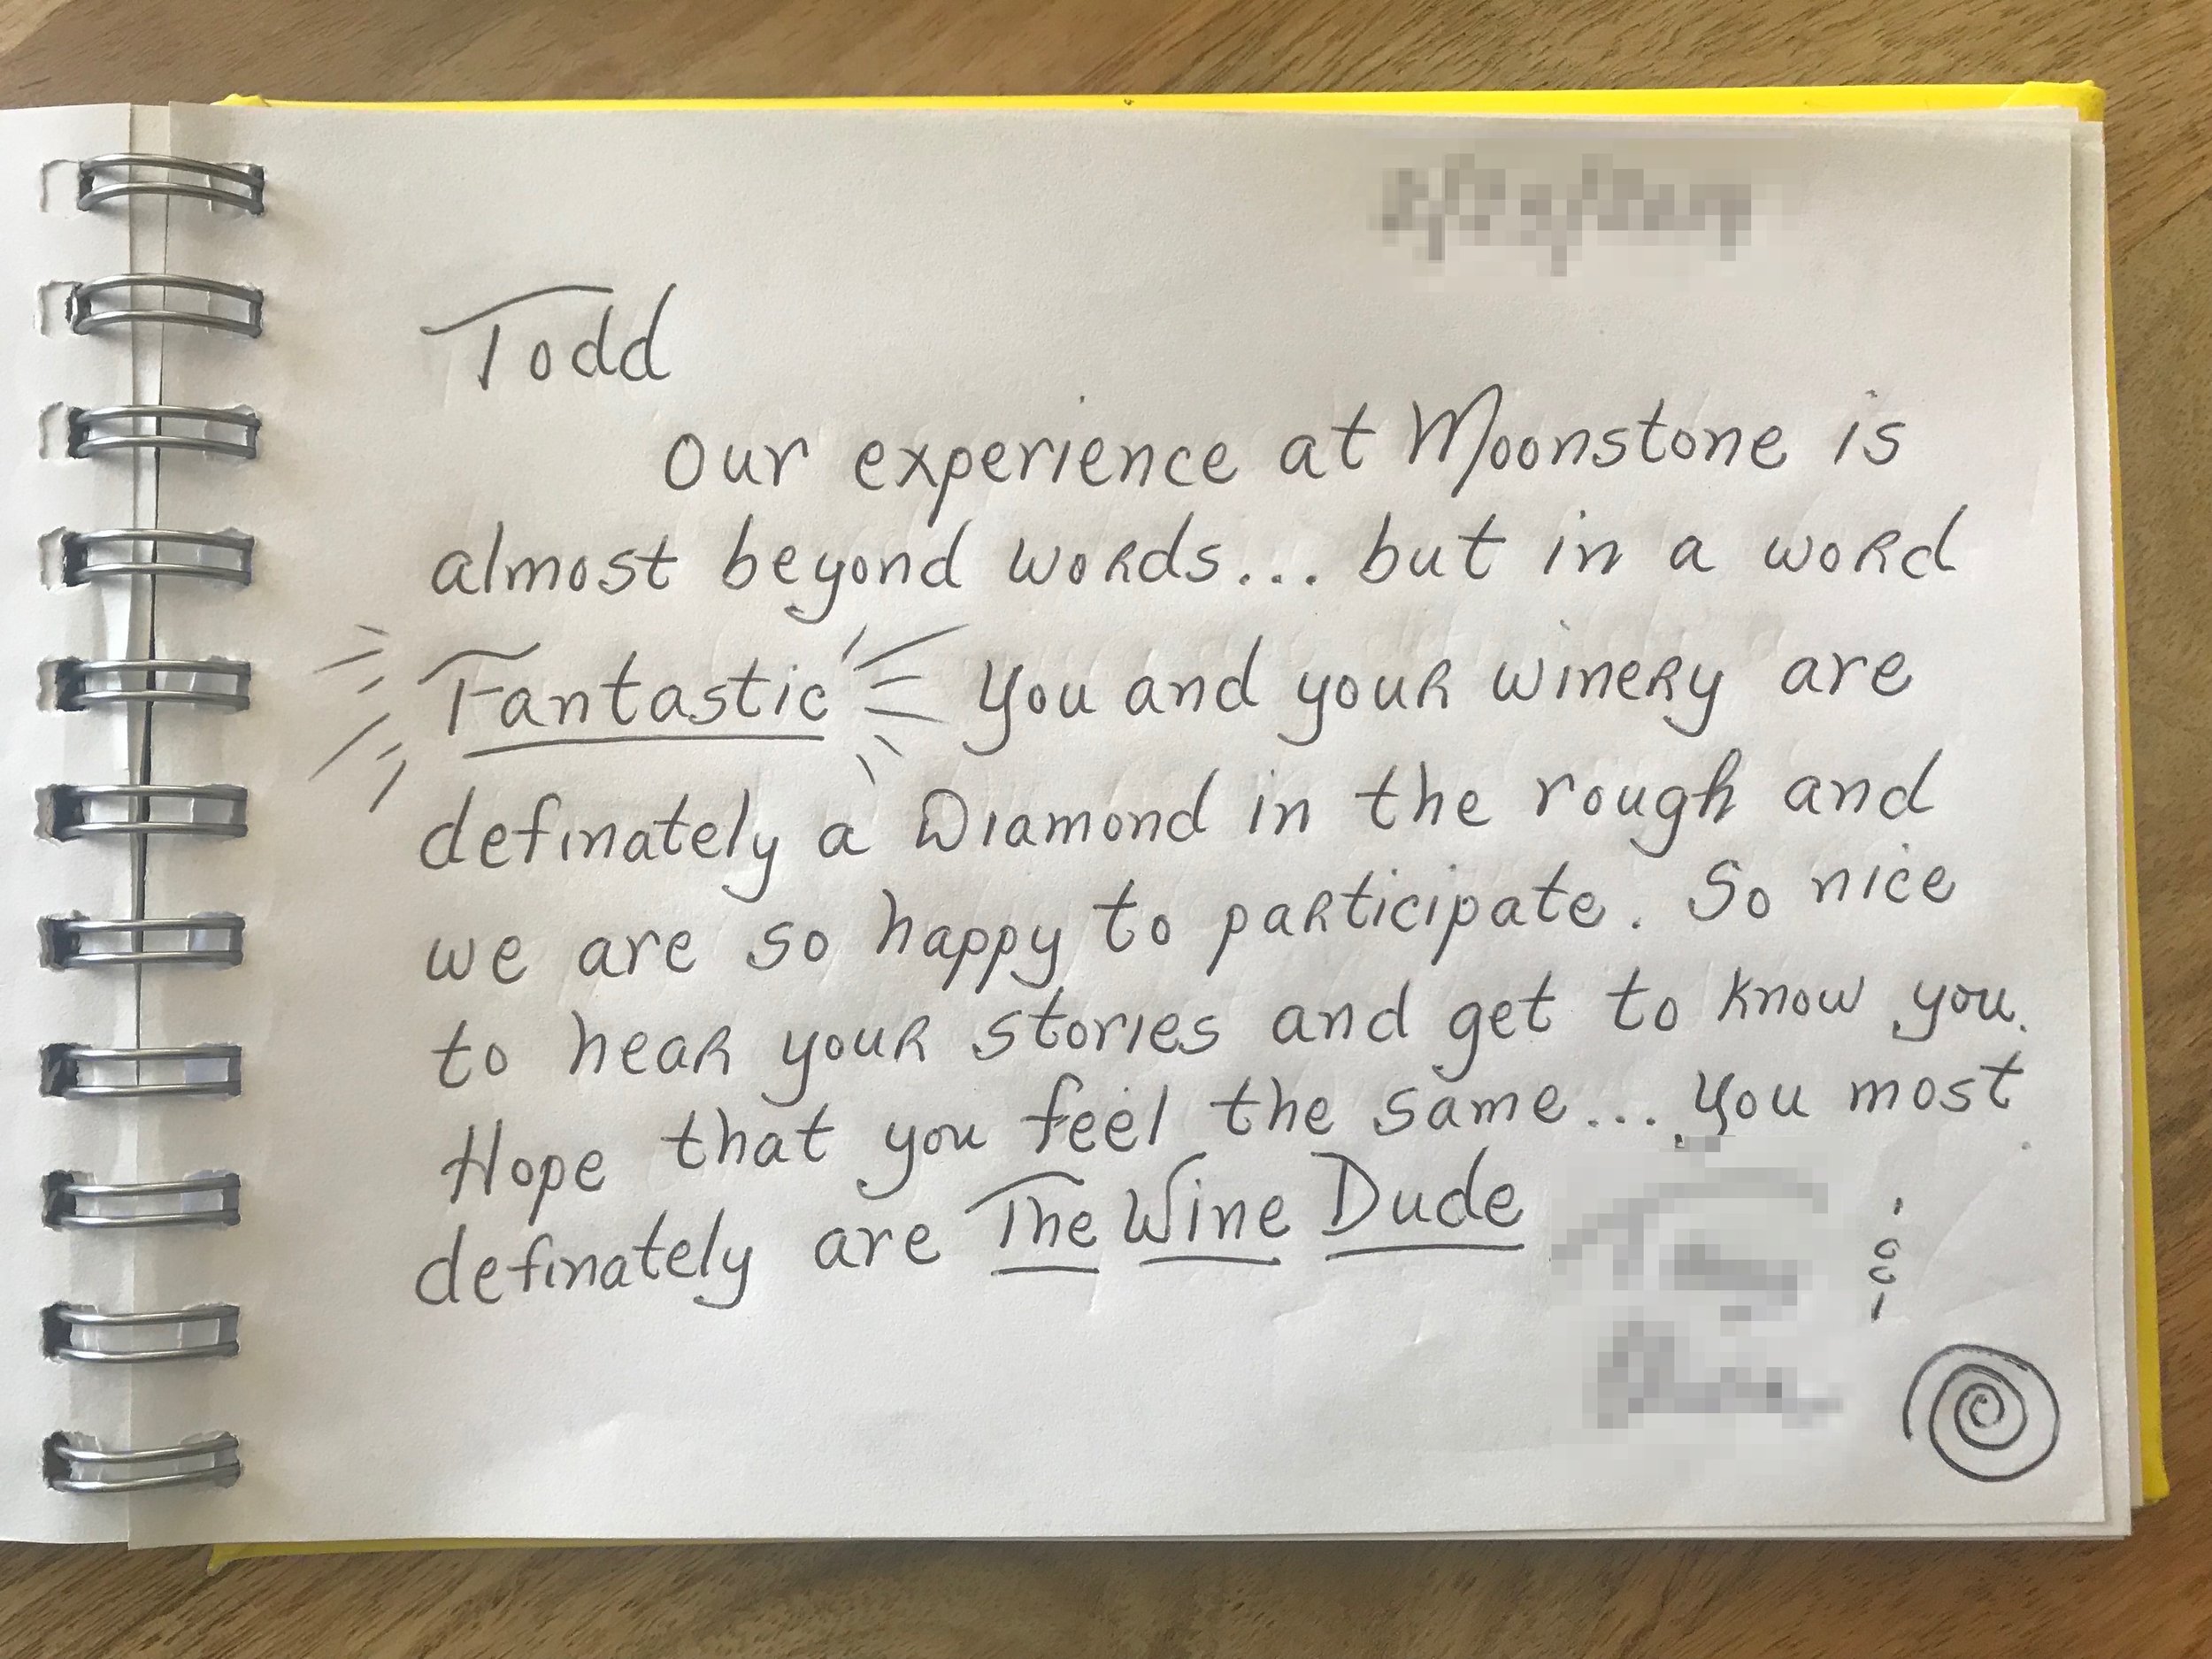 Todd
Our experience at Moonstone is
almost beyond words... but in a word
Fantastic You and your winery are
definately a Diamond in the rough and
we are so happy to participate. So nice
to hear your stories and get to know you.
Hope that you feel the same... You most
definately are The Wine Dude